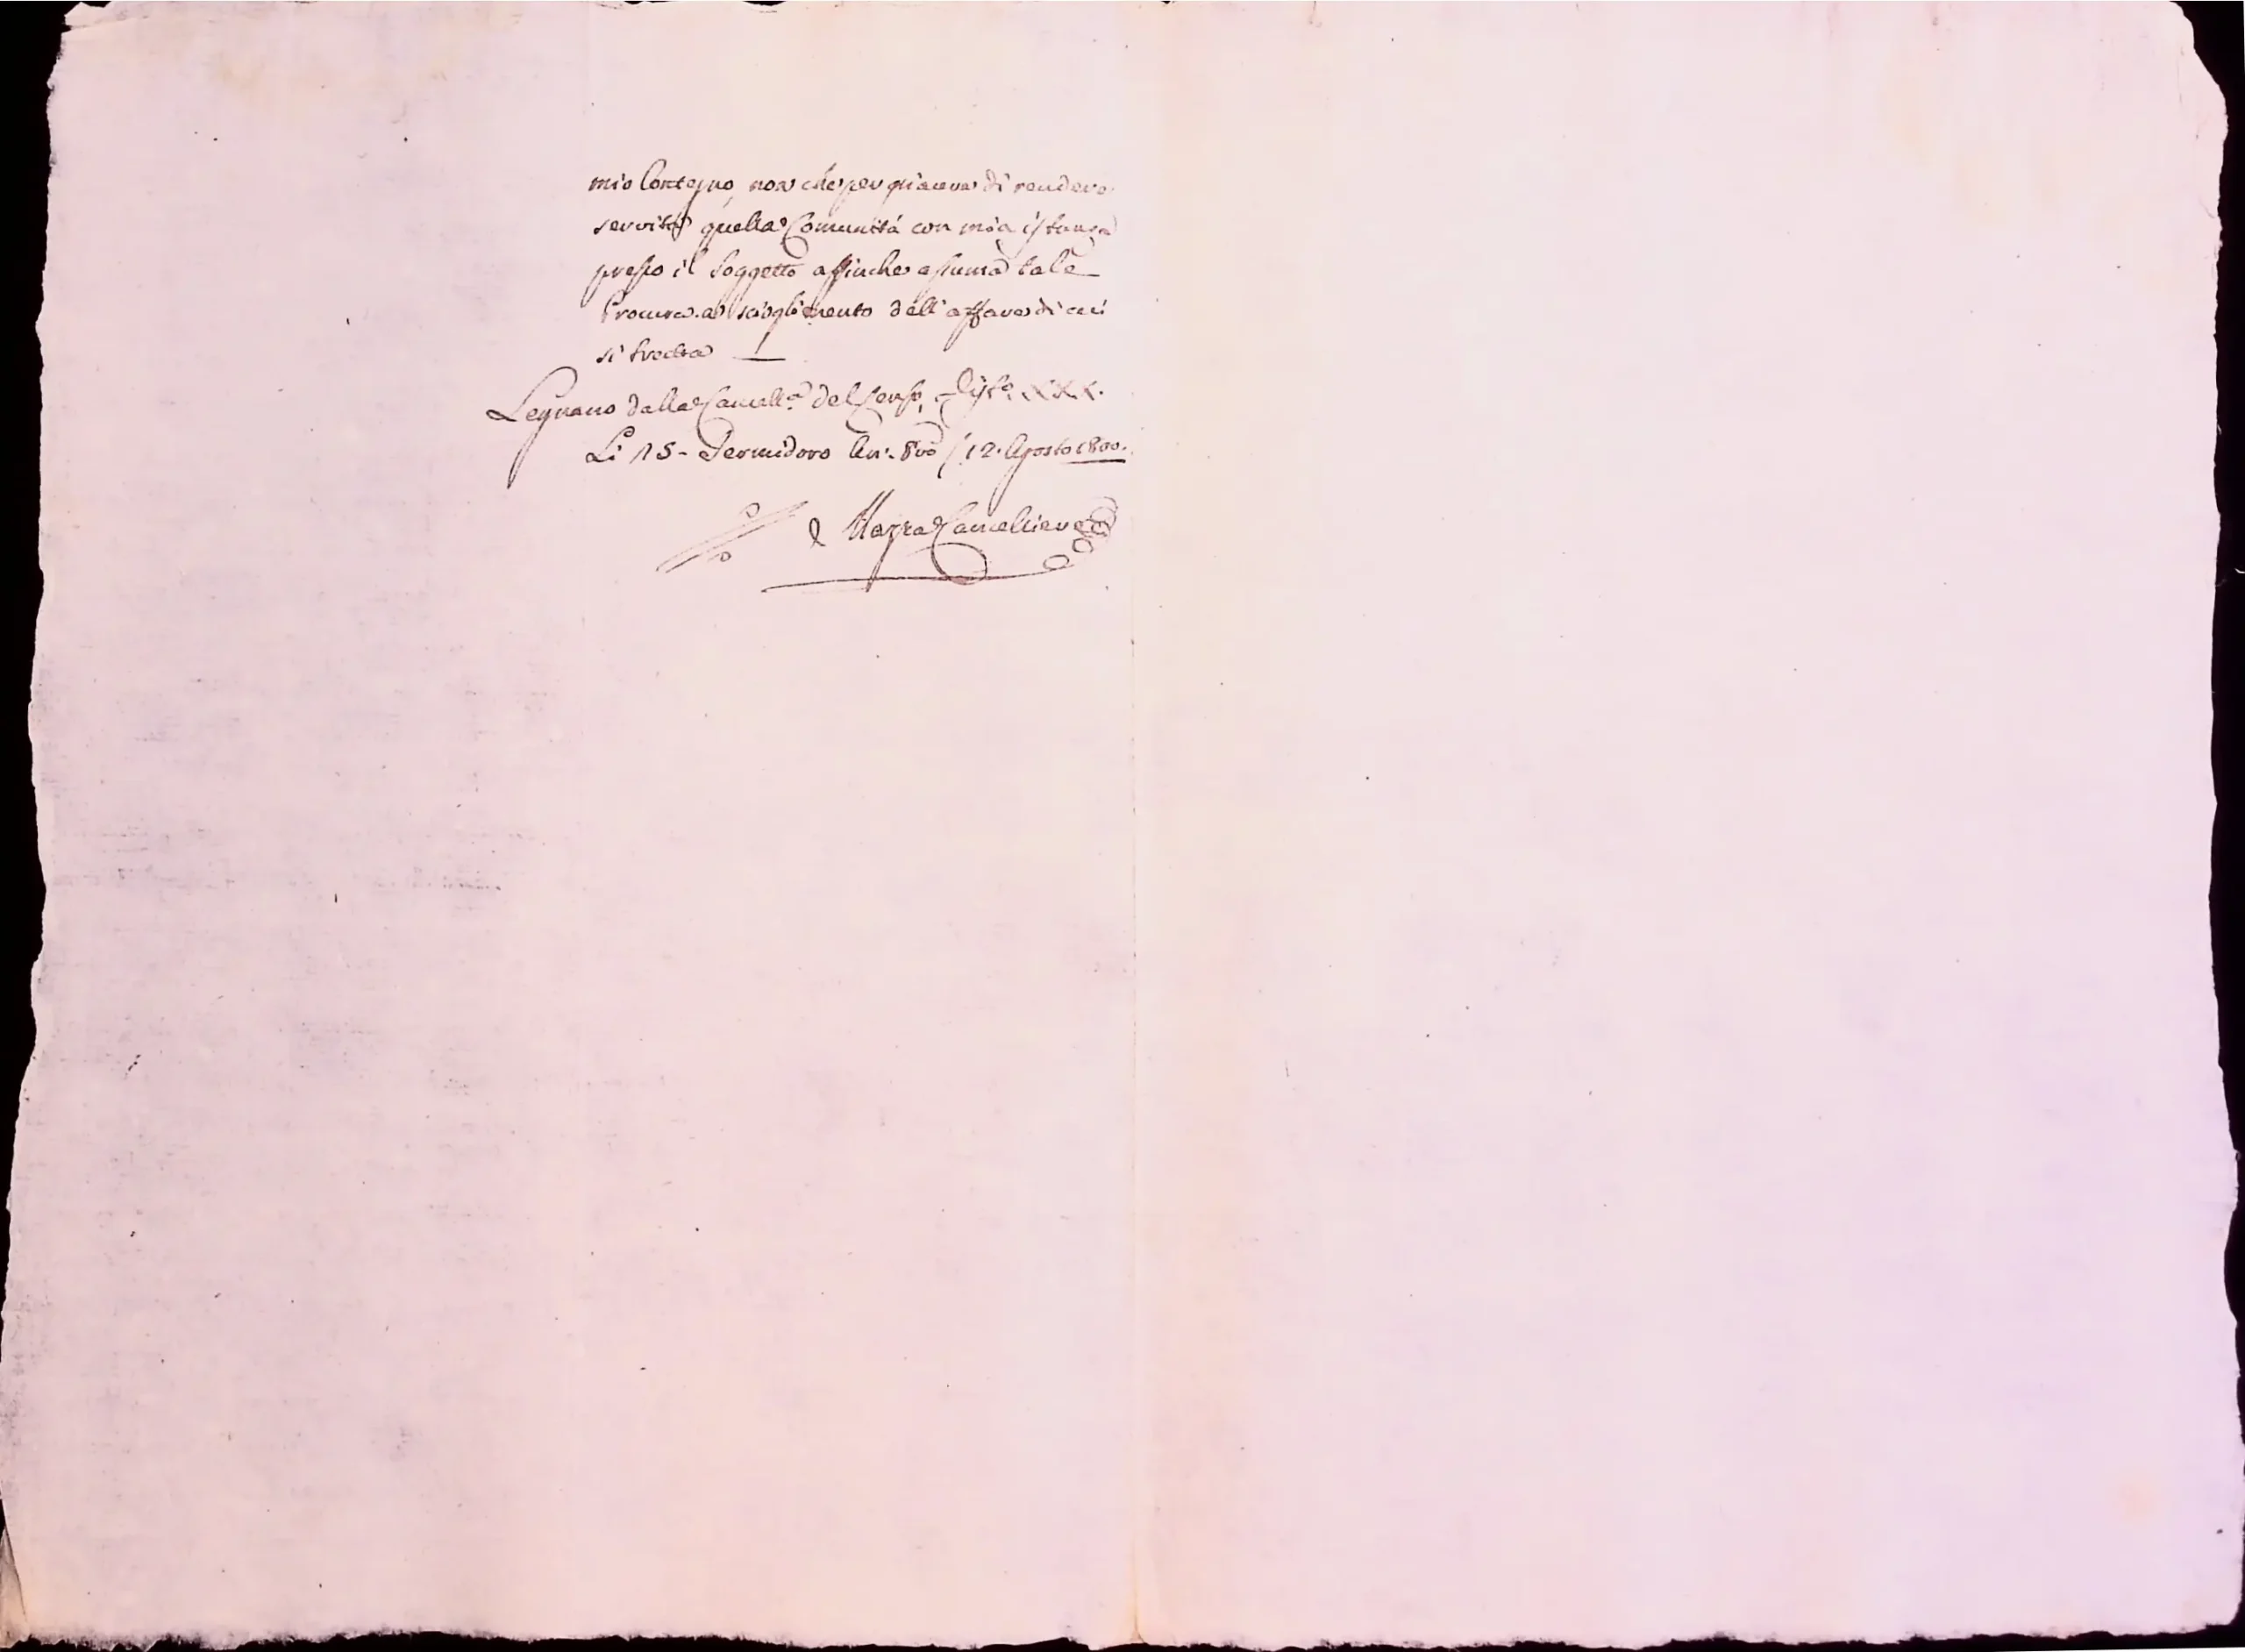 mio Contegno, non che per piacere di rendere
servita quella Comunità con mia istanza
presso il Soggetto affinche assuma tale
Procura a scioglimento dell'affare di cui
si tratta
Legnano dalla Cancell.a del Censo, Dist.o XXX.
Li 15 - Termidoro An. 8vo / 12. Agosto 1800.
Mazza Cancelliere